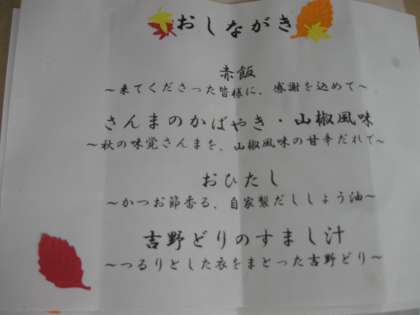 おしながき
赤飯
~来てくださった皆様に、感謝を込めて~
さんまのかばやき・山椒風味
~秋の味覚さんまを、山椒風味の甘辛だれで~
おひたし
~かつお節香る、自家製だししょう油~
吉野どりのすまし汁
~つるりとした衣をまとった吉野どり~